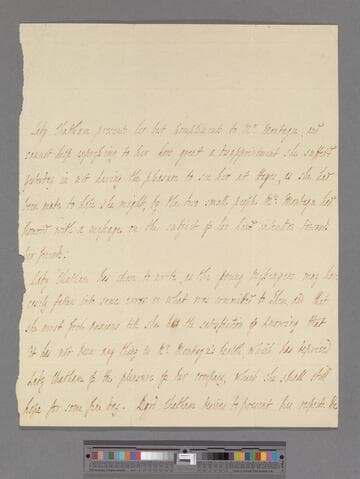 Lady Chatham presents her best Compliments to Mrs. Montagu, and
cannot help expressing to her how great a disappointment she suffer'd
yesterday in not having the pleasure to see her at Hayes, as she had
been made to hope she might, by the two small people Mrs. Montagu had
honor'd with a message on the subject of her kind intention towards
her friends.
Lady Chatham has chose to write, as the young Messengers may have
easily fallen into some error in what was committed to them, and that
she must feel anxious till she has the satisfaction of knowing that
it has not been any thing in Mrs. Montagu's health which has deprived
Lady Chatham of the pleasure of her company, which she shall still
hope for some fine day. Lord Chatham desires to present his respects. &c